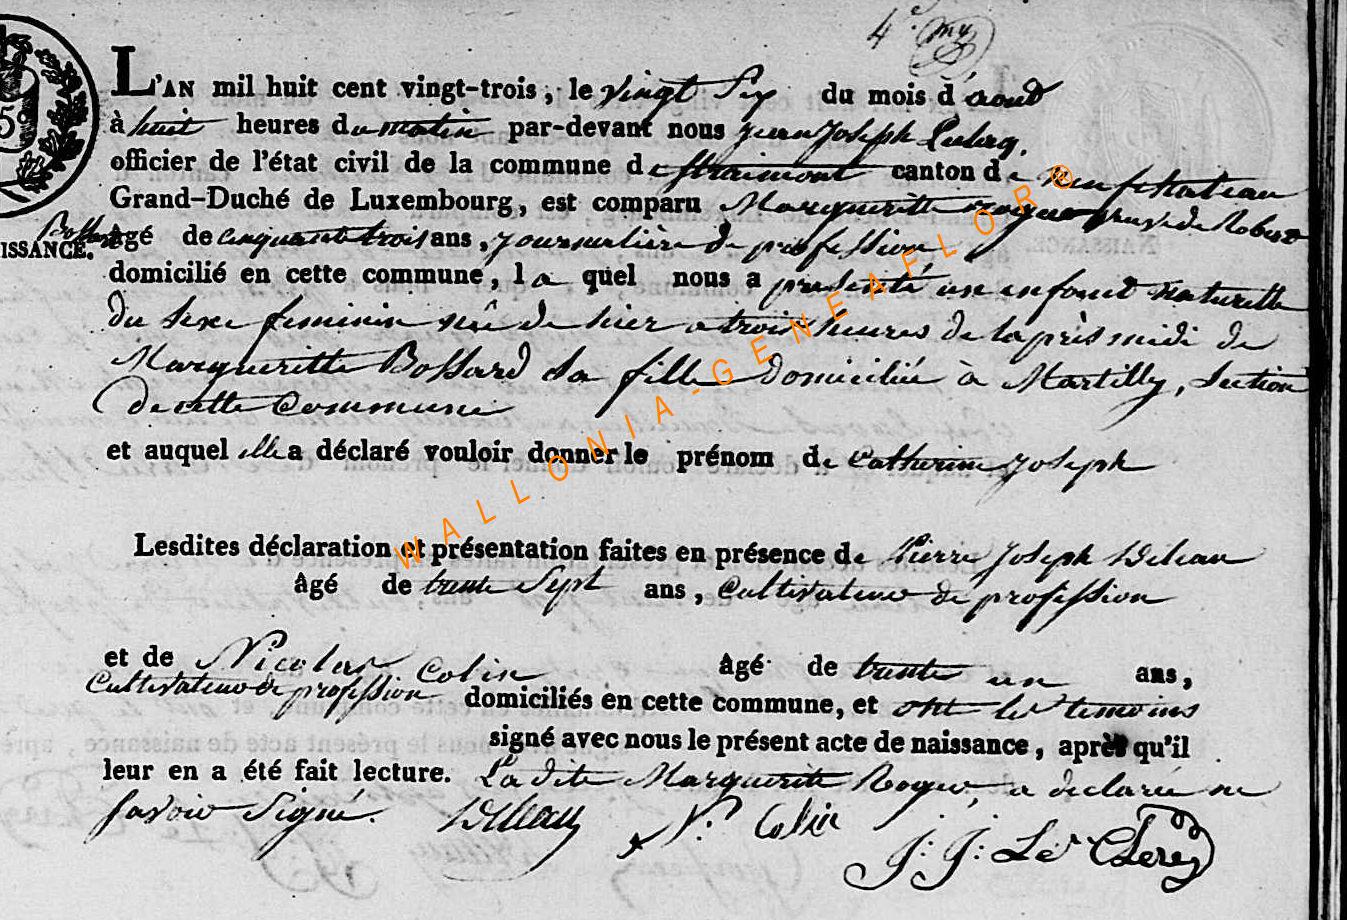 4e.
L'AN mil huit cent vingt-trois, le vingt Six du mois d'aout
à huit heures du matin par-devant nous jean Joseph Leclerq,
officier de l'état civil de la commune de straimont canton de neufchateau
Grand-Duché de Luxembourg, est comparu Margueritte Roger veuve de Robert
Bossard
NAISSANCE.
âgé de cinquante trois ans, journaliére de profession
domicilié en cette commune, la quel nous a presenté un enfant naturelle
du sexe feminin née de hier a trois heures de la près midi de
Margueritte Bossard sa fille domiciliée à Martilly, Section
de cette Commune
et auquel elle a déclaré vouloir donner le prénom de Catherine joseph
Lesdites déclaration et présentation faites en présence de Pierre Joseph
âgé de trente Sept ans, Cultivateur de profession
et de Nicolas Colin âgé de trente un ans,
Cultivateur de profession domiciliés en cette commune, et ont les temoins
signé avec nous le présent acte de naissance, après qu'il
leur en a été fait lecture. La dite Margueritte Roger, a declarée ne
savoir Signé. N: Colin
J: J: Le Clere
WALLONIA-GENEAFLOR®